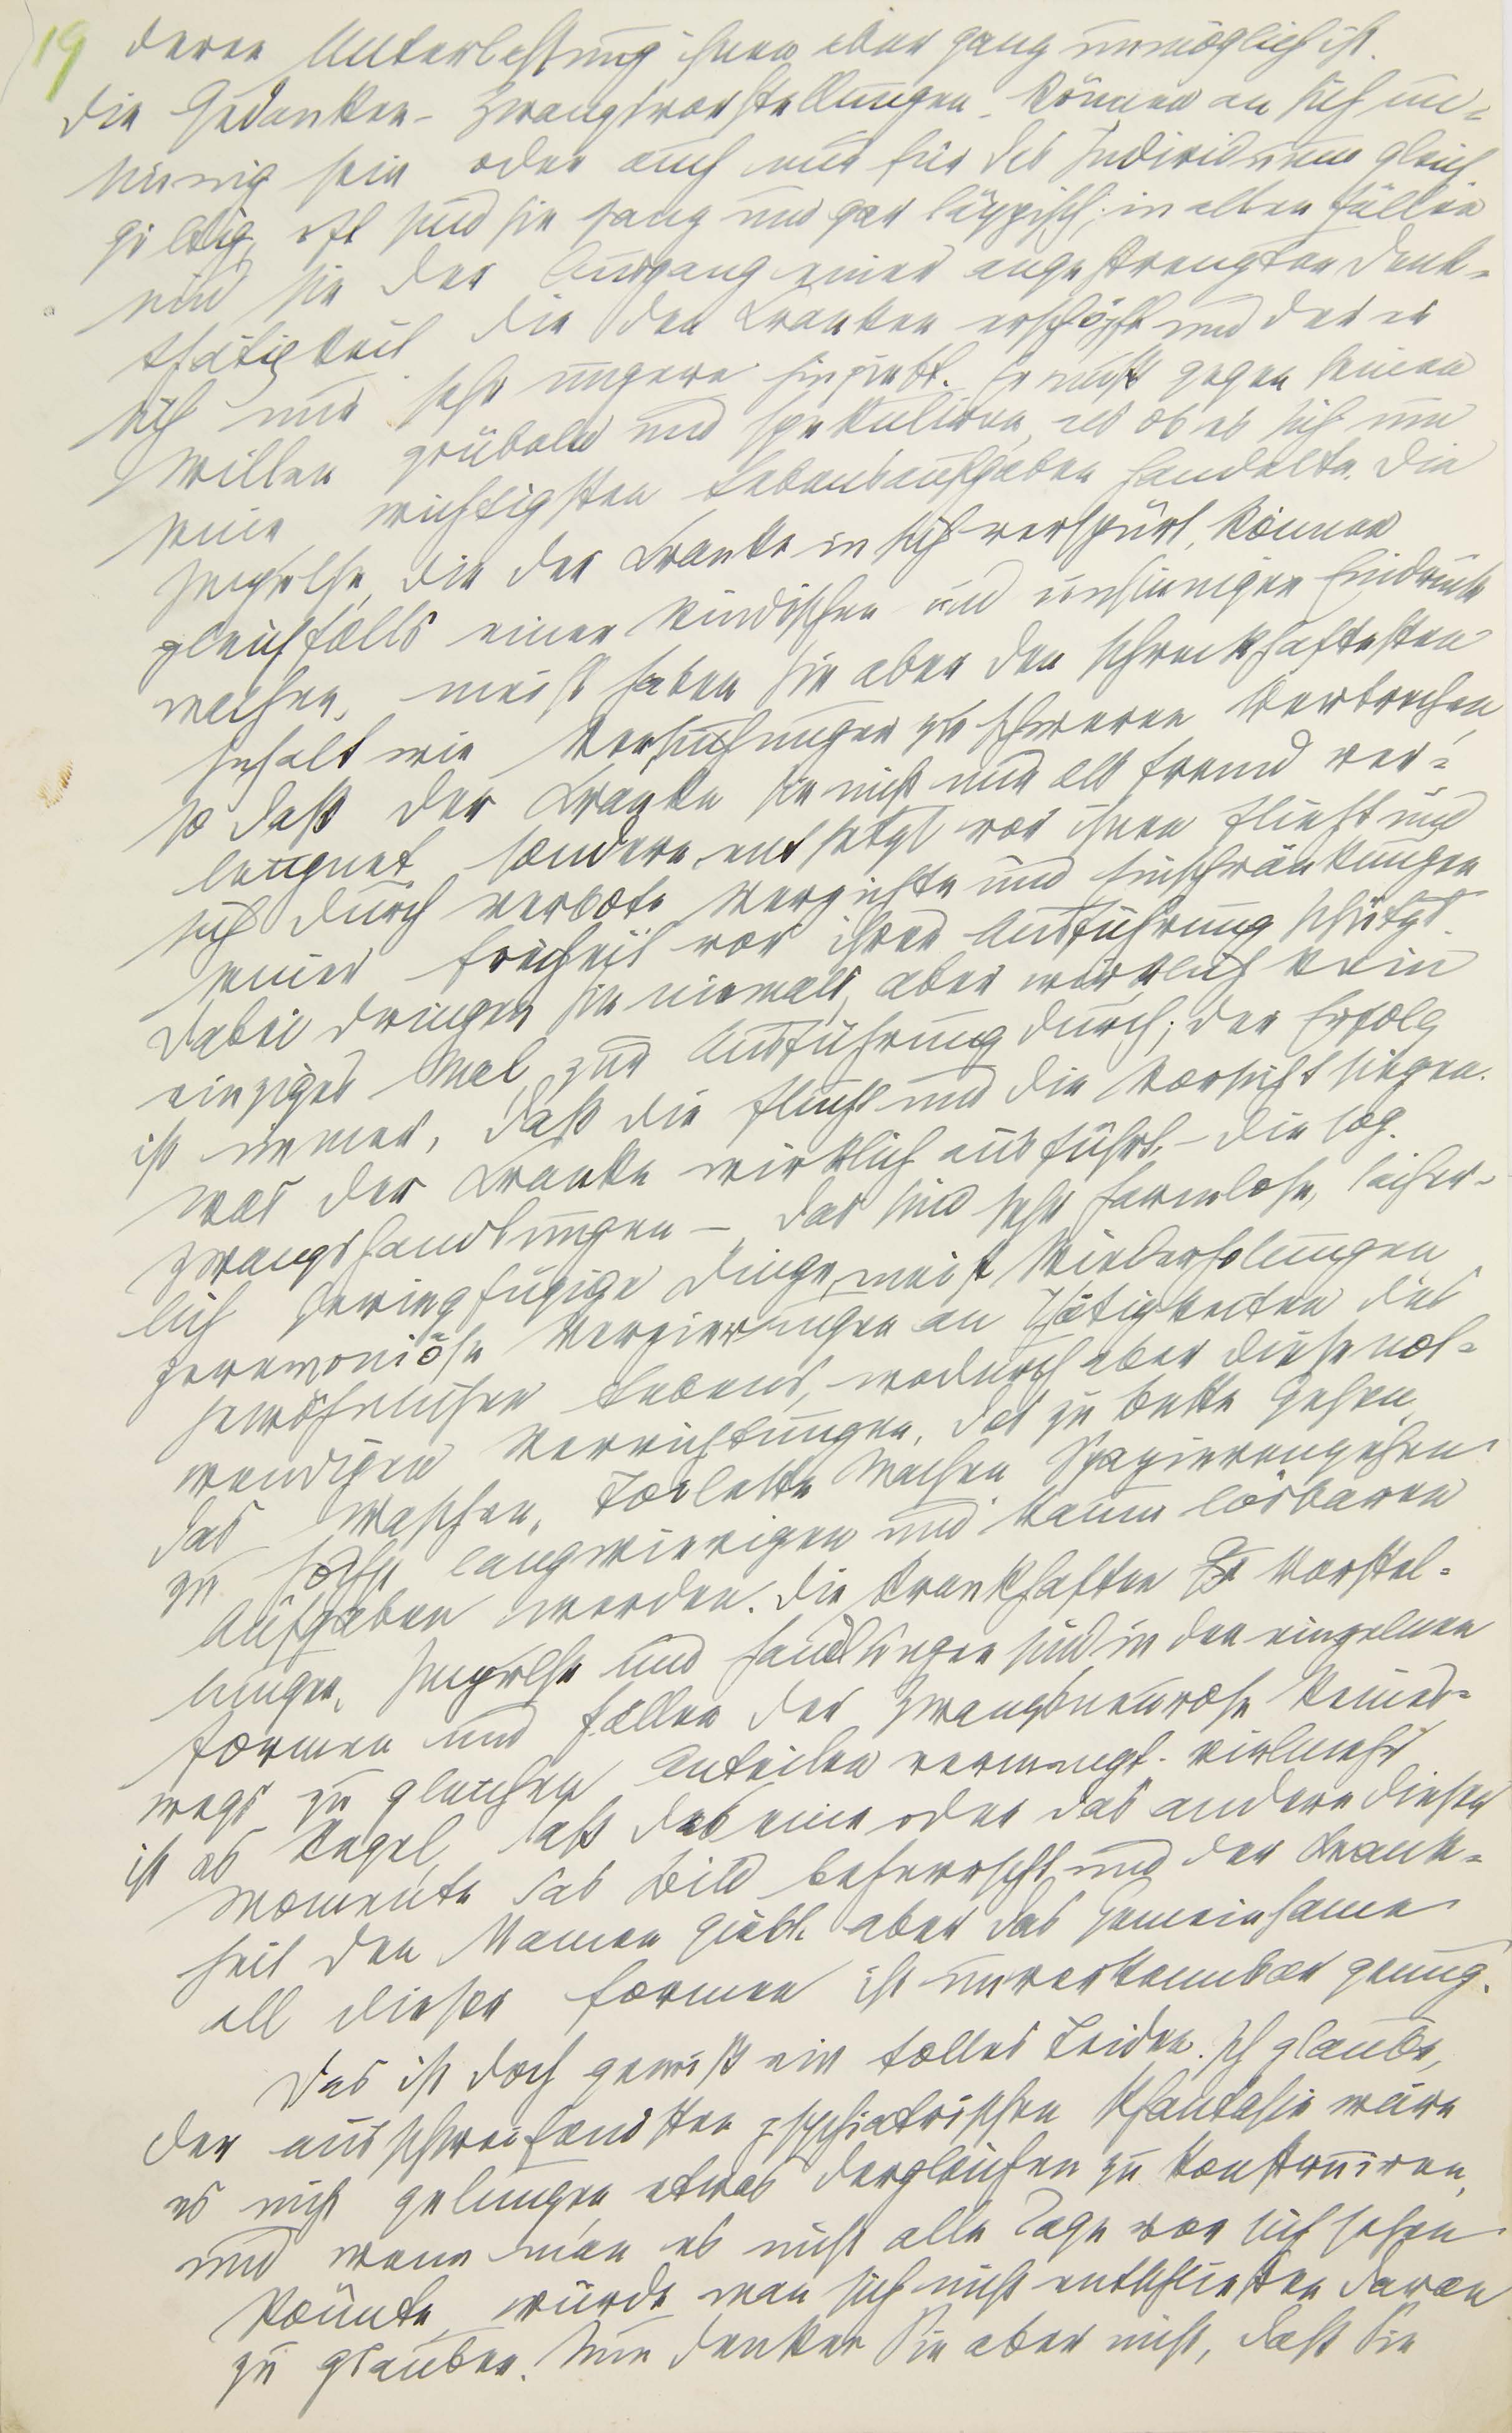 19 deren Unterlassung ihnen aber ganz unmöglich ist.
Die Gedanken - Zwangsvorstellungen - können an sich un-
sinnig sein oder auch nur für das Individuum gleich
giltig, oft sind sie ganz und gar läppisch; in allen Fällen
sind sie der Ausgang einer angestrengten Denk-
thätigkeit die den Kranken erschöpft und der er
sich nur sehr ungern hingiebt. Er muß gegen seinen
Willen grübeln und spekuliren, als ob es sich um
seine wichtigsten Lebensaufgaben handelte. Die
Impulse, die der Kranke in sich verspürt, können
gleichfalls einen kindischen und unsinnigen Eindruck
machen, meist haben sie aber den schreckhaftesten
Inhalt wie Versuchungen zu schweren Verbrechen,
so daß der Kranke sie nicht nur als fremd ver-
leugnet, sondern entsetzt vor ihnen flieht und
sich durch Verbote Verzichte und Einschränkungen
seiner Freiheit vor ihrer Ausführung schützt.
Dabei dringen sie niemals, aber wirklich kein
einziges Mal zur Ausführung durch; der Erfolg
ist immer, daß die Flucht und die Vorsicht siegen.
Was der Kranke wirklich ausführt, - die sog.
Zwangshandlungen -, das sind sehr harmlose, sicher-
lich geringfügige Dinge, meist Wiederholungen
zeremoniöse Verzierungen an Thätigkeiten des
gewöhnlichen Lebens, wodurch aber diese not-
wendigen Verrichtungen, das zu Bette Gehen,
das Waschen, Toilette Machen Spazierengehen
zu höchst langwierigen und kaum lösbaren
Aufgaben werden. Die krankhaften Vorstel-
lungen, Impulse und Handlungen sind in den einzelnen
Formen und Fällen der Zwangsneurose keines-
wegs zu gleichen Anteilen vermengt. vielmehr
ist es Regel, daß das eine oder das andere dieser
Momente das Bild beherrscht und der Krank-
heit den Namen giebt. aber das Gemeinsame
all dieser Formen ist unverkennbar genug.
Das ist doch gewiß ein tolles Leiden. Ich glaube,
der ausschweifendsten psychiatrischen Phantasie wäre
es nicht gelungen etwas dergleichen zu konstruiren,
und wenn man es nicht alle Tage vor sich sehen
könnte, würde man sich nicht entschließen daran
zu glauben. Nun denken Sie aber nicht, daß Sie